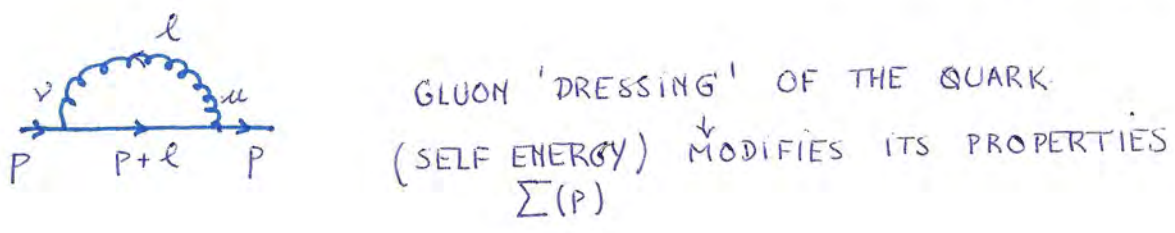 l
ν μ
p p+l p
GLUON 'DRESSING' OF THE QUARK
(SELF ENERGY) → MODIFIES ITS PROPERTIES
Σ(p)